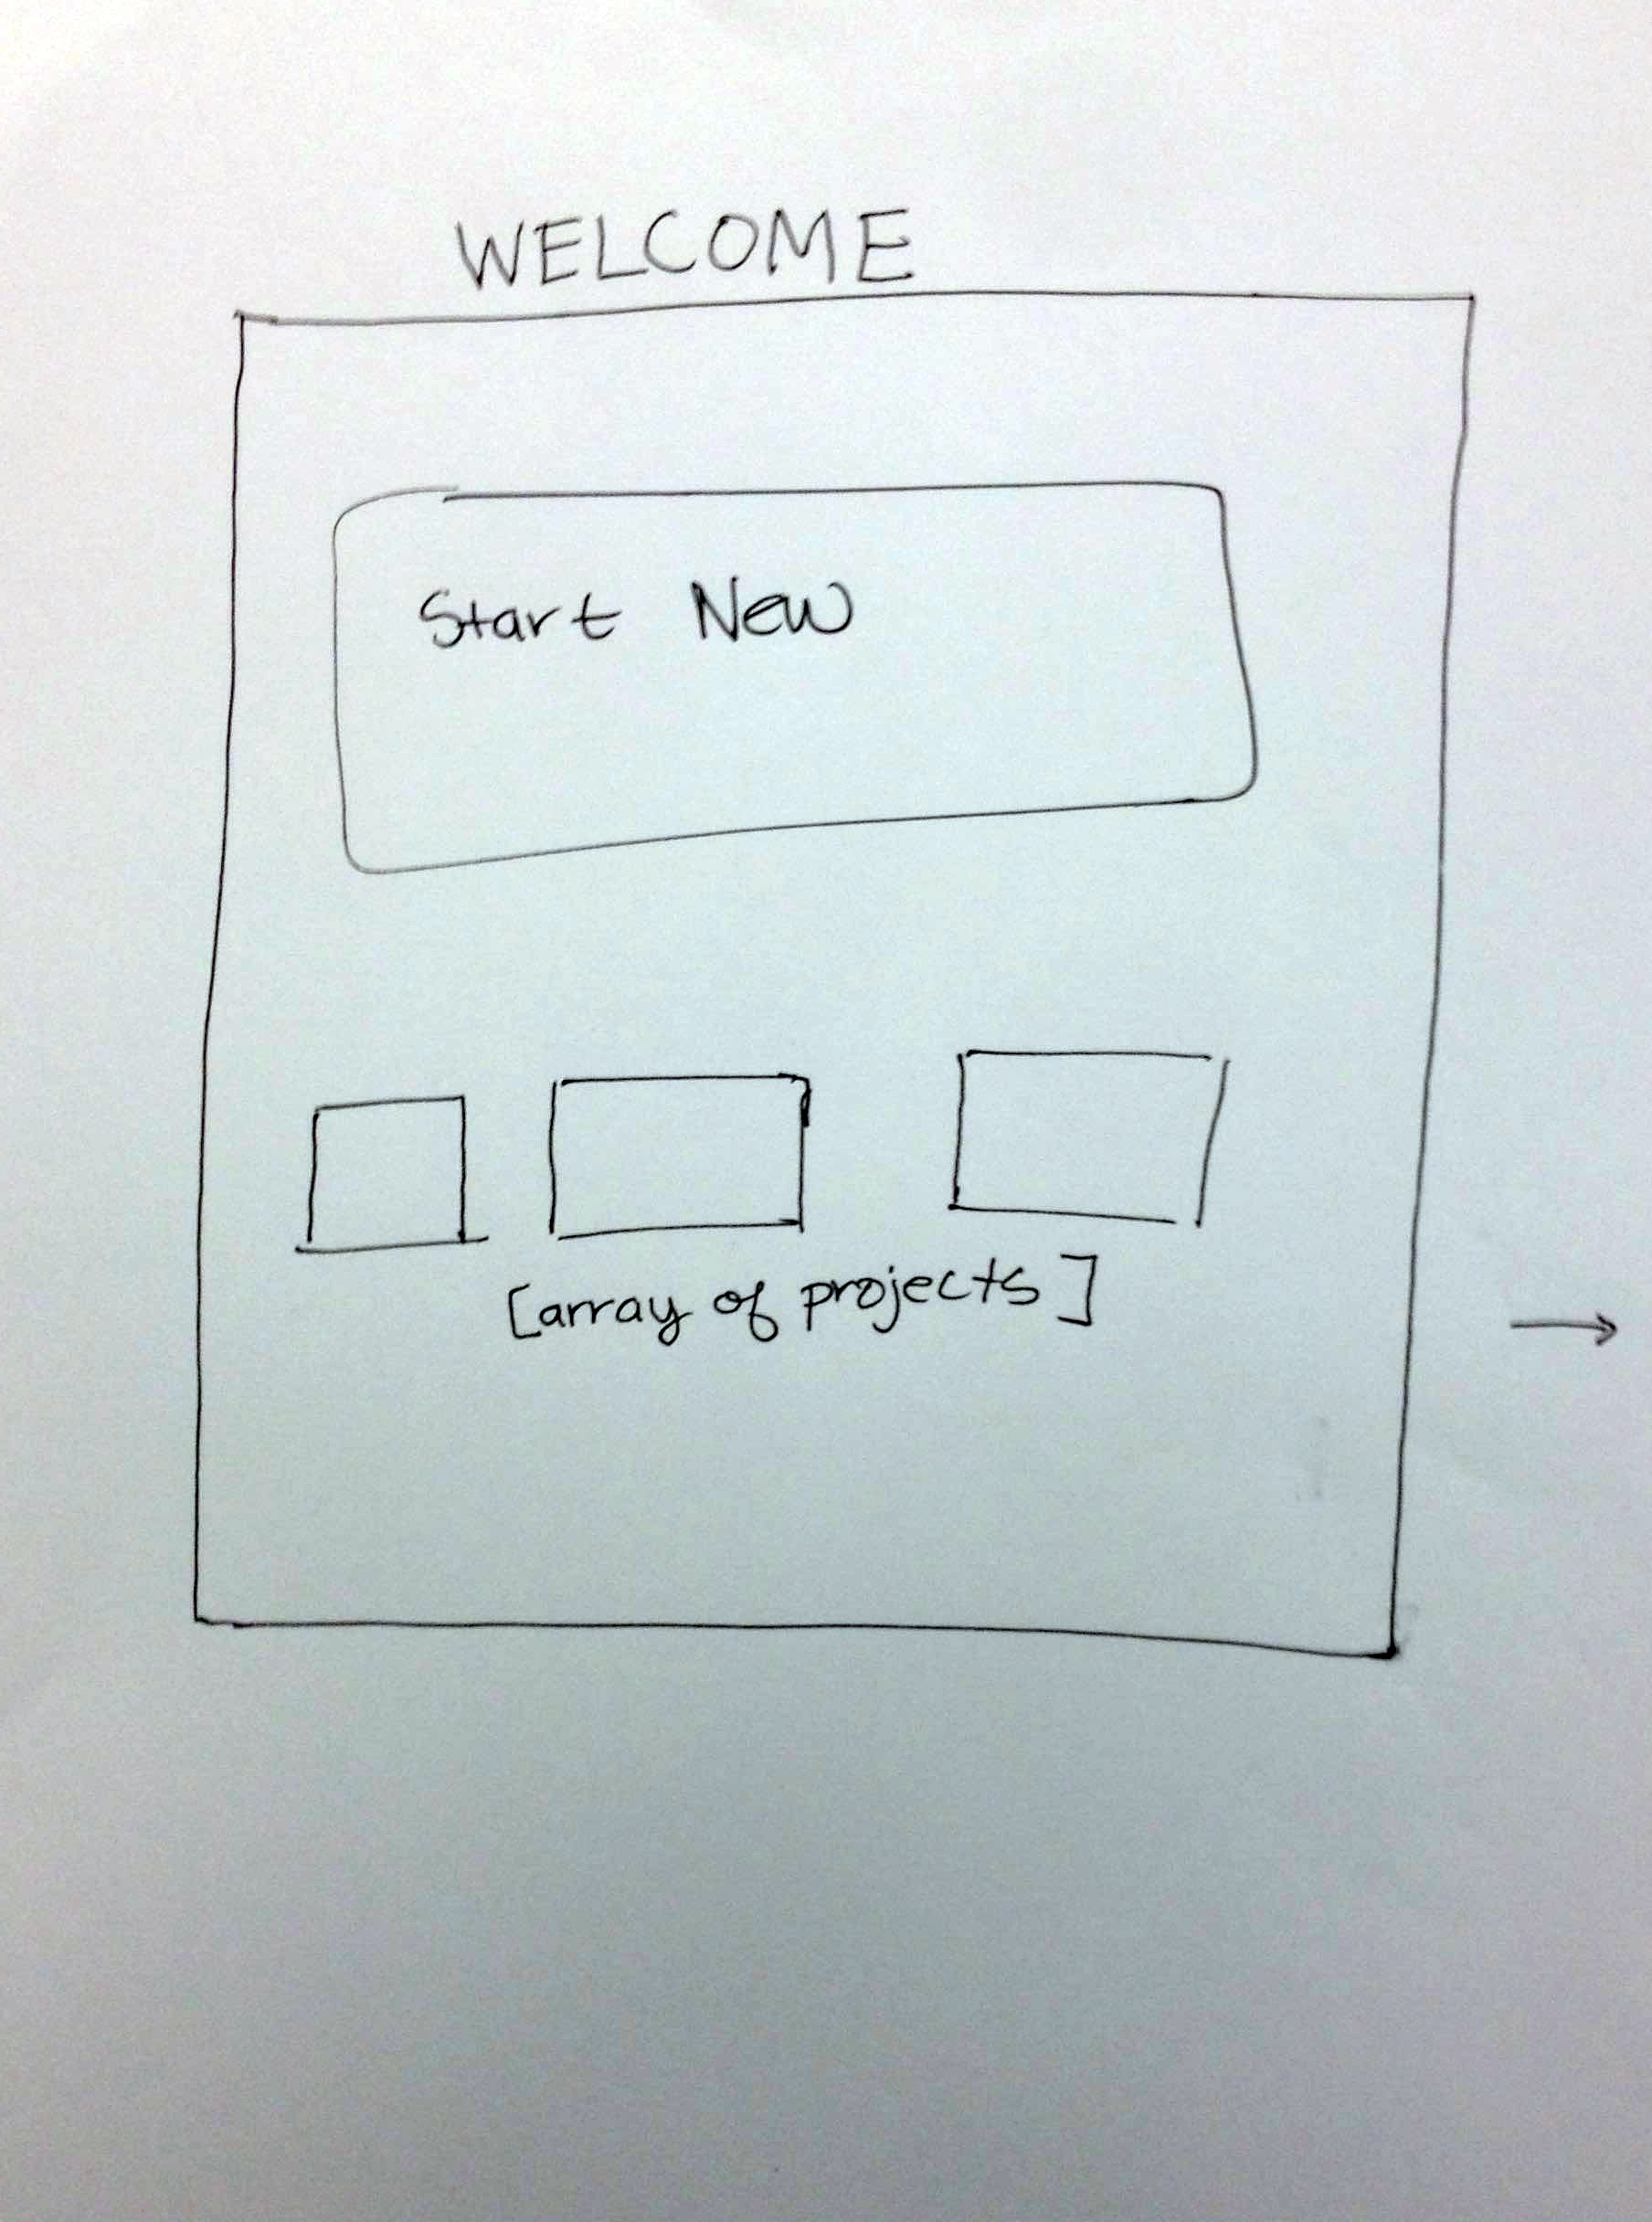 WELCOME
Start New
[array of projects]